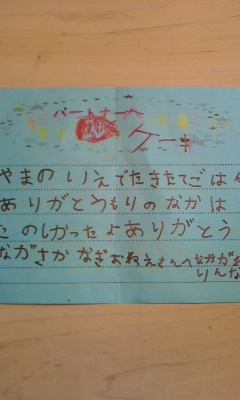 パートナーへ
ケーキ
やまのいえでたきたてごは
ありがとうもりのなかは
このしかったよありがとう
ながさかなぎおねえさんへなかが
りんな